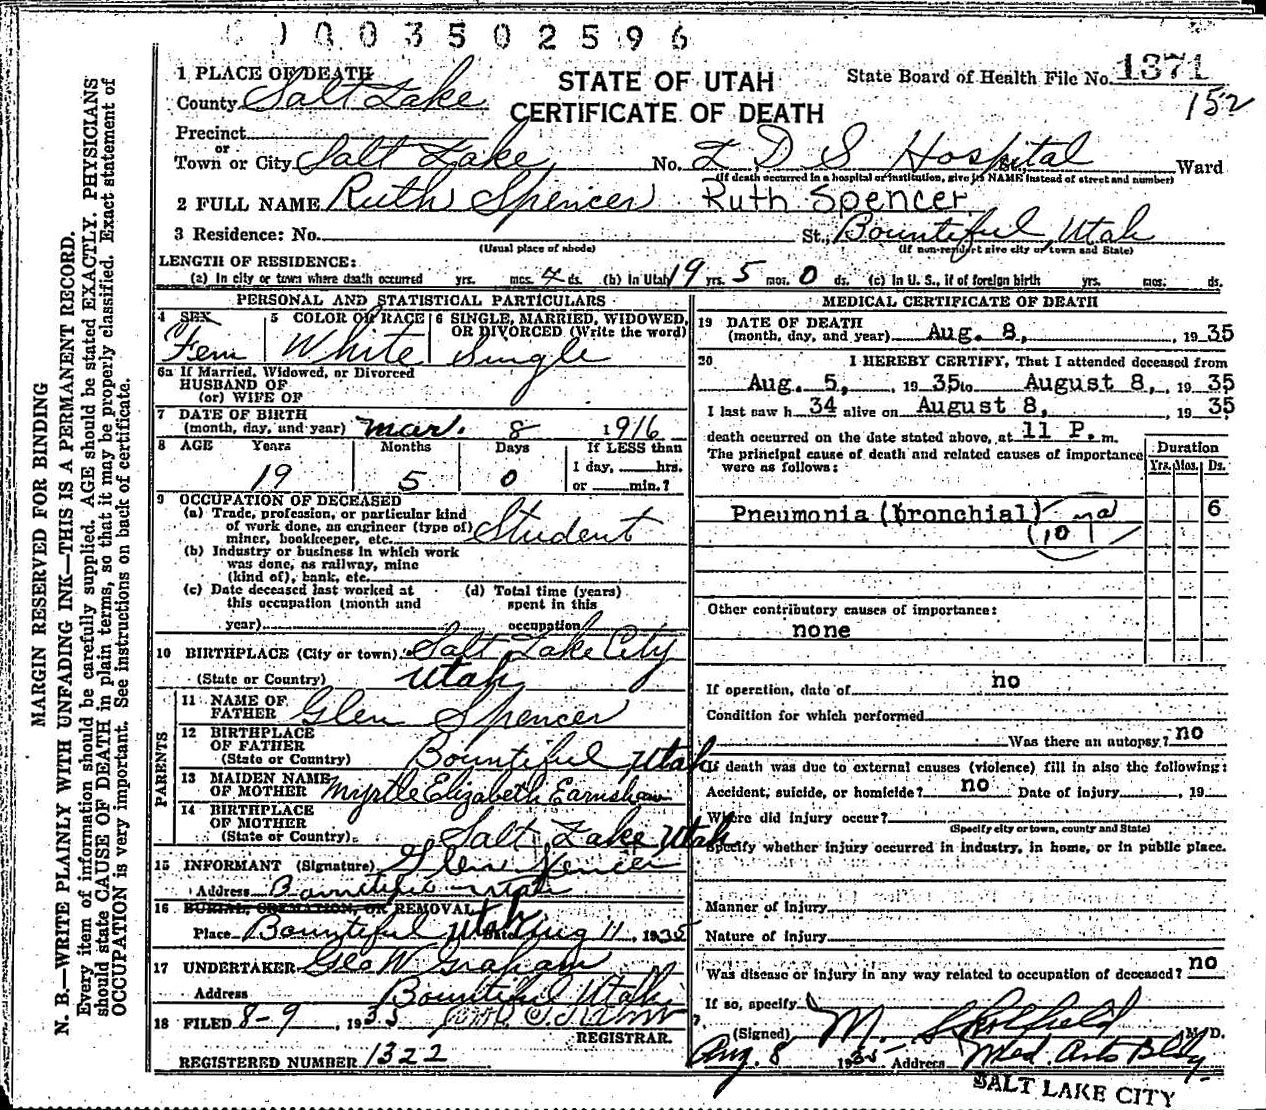 0 0 3 5 0 2 5 9 6
1 PLACE OF DEATH
STATE OF UTAH
CERTIFICATE OF DEATH
State Board of Health File No. 1371
152
County Salt Lake
Precinct
or
Town or City Salt Lake No. L D S Hospital St. Ward
(If death occurred in a hospital or institution, give its NAME instead of street and number)
2 FULL NAME Ruth Spencer Ruth Spencer
3 Residence: No. St., Bountiful, Utah
(Usual place of abode) (If non-resident give city or town and State)
LENGTH OF RESIDENCE:
(a) In city or town where death occurred yrs. mos. 4 ds. (b) in Utah 19 yrs. 5 mos. 0 ds. (c) in U. S., if of foreign birth yrs. mos. ds.
PERSONAL AND STATISTICAL PARTICULARS
4 SEX 5 COLOR OR RACE 6 SINGLE, MARRIED, WIDOWED, OR DIVORCED (Write the word)
Fem White Single
6a If Married, Widowed, or Divorced
HUSBAND OF
(or) WIFE OF
7 DATE OF BIRTH
(month, day, and year) Mar. 8 1916
8 AGE Years Months Days If LESS than
19 5 0 1 day, hrs.
or min.?
9 OCCUPATION OF DECEASED
(a) Trade, profession, or particular kind
of work done, as engineer (type of)
miner, bookkeeper, etc. Student
(b) Industry or business in which work
was done, as railway, mine
(kind of), bank, etc.
(c) Date deceased last worked at
this occupation (month and
year)
(d) Total time (years)
spent in this
occupation
10 BIRTHPLACE (City or town) Salt Lake City
(State or Country) Utah
PARENTS
11 NAME OF
FATHER Glen Spencer
12 BIRTHPLACE
OF FATHER
(State or Country) Bountiful Utah
13 MAIDEN NAME
OF MOTHER Myrtle Elizabeth Earnshaw
14 BIRTHPLACE
OF MOTHER
(State or Country) Salt Lake Utah
15 INFORMANT (Signature) Glen Spencer
Address Bountiful Utah
16 BURIAL, CREMATION, OR REMOVAL
Place Bountiful Utah Date Aug 11, 1935
17 UNDERTAKER Geo W Graham
Address Bountiful Utah
18 FILED 8-9, 1935
REGISTRAR.
REGISTERED NUMBER 1322
MEDICAL CERTIFICATE OF DEATH
19 DATE OF DEATH
(month, day, and year) Aug. 8, 1935
20 I HEREBY CERTIFY, That I attended deceased from
Aug. 5, 1935 to August 8, 1935
I last saw h 34 alive on August 8, 1935
death occurred on the date stated above, at 11 P. m.
The principal cause of death and related causes of importance
were as follows:
Duration
Yrs. Mos. Ds.
Pneumonia (bronchial) 6
107a
Other contributory causes of importance:
none
If operation, date of no
Condition for which performed
Was there an autopsy? no
If death was due to external causes (violence) fill in also the following:
Accident, suicide, or homicide? no Date of injury, 19
Where did injury occur?
(Specify city or town, county and State)
Specify whether injury occurred in industry, in home, or in public place.
Manner of injury
Nature of injury
Was disease or injury in any way related to occupation of deceased? no
If so, specify
(Signed) M. M. D.
Aug. 8 1935 Address Med. Arts Bldg
SALT LAKE CITY
MARGIN RESERVED FOR BINDING
N. B.—WRITE PLAINLY WITH UNFADING INK—THIS IS A PERMANENT RECORD.
Every item of information should be carefully supplied. AGE should be stated EXACTLY. PHYSICIANS
should state CAUSE OF DEATH in plain terms, so that it may be properly classified. Exact statement of
OCCUPATION is very important. See instructions on back of certificate.